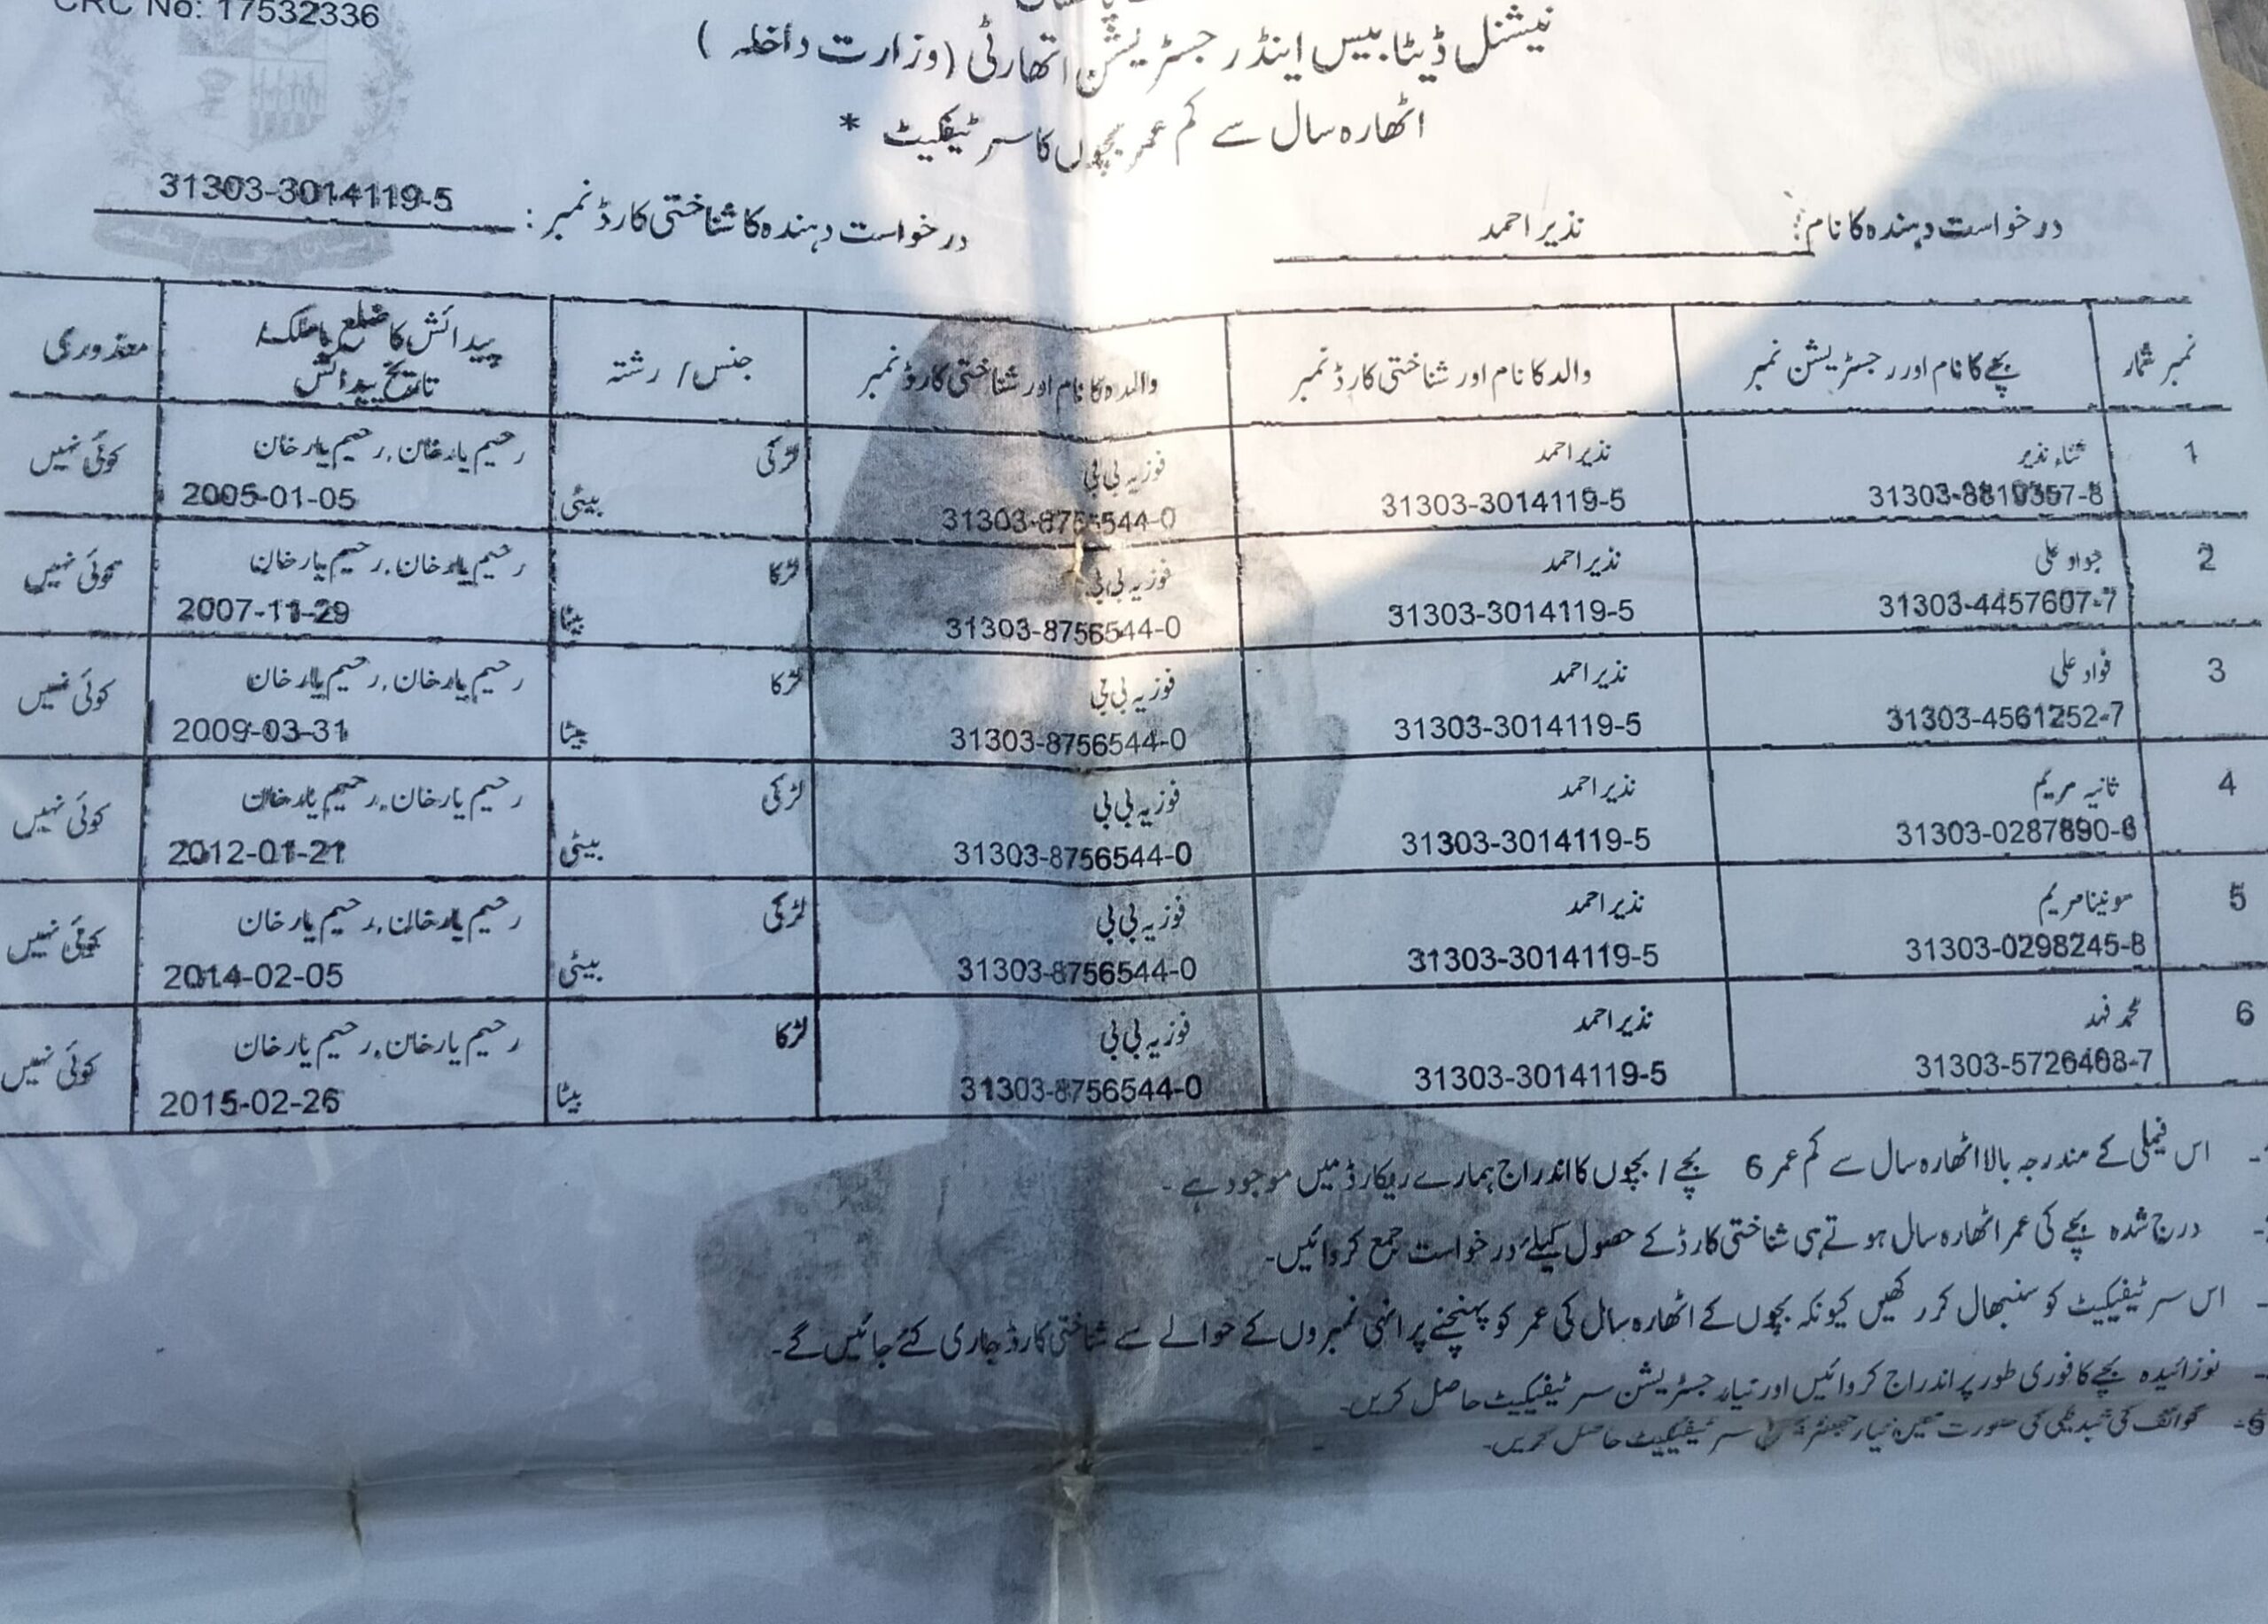 CRC No: 17532336
نیشنل ڈیٹا بیس اینڈ رجسٹریشن اتھارٹی (وزارت داخلہ )
اٹھارہ سال سے کم عمر بچوں کا سرٹیفکیٹ *
درخواست دہندہ کا نام: نذیر احمد درخواست دہندہ کا شناختی کارڈ نمبر : 31303-3014119-5
نمبر شمار بچے کا نام اور رجسٹریشن نمبر والد کا نام اور شناختی کارڈ نمبر والدہ کا نام اور شناختی کارڈ نمبر جنس / رشتہ پیدائش کا ضلع یا ملک / معذوری
تاریخ پیدائش
1 ثناء نذیر نذیر احمد فوزیہ بی بی لڑکی رحیم یار خان, رحیم یار خان کوئی نہیں
31303-3014119-5 بیٹی 2005-01-05
2 جواد علی نذیر احمد فوزیہ بی بی لڑکا رحیم یار خان, رحیم یار خان کوئی نہیں
31303-4457607-7 31303-3014119-5 31303-8756544-0 بیٹا 2007-11-29
3 فواد علی نذیر احمد فوزیہ بی بی لڑکا رحیم یار خان, رحیم یار خان کوئی نہیں
31303-4561252-7 31303-3014119-5 31303-8756544-0 بیٹا 2009-03-31
4 ثانیہ مریم نذیر احمد فوزیہ بی بی لڑکی رحیم یار خان, رحیم یار خان کوئی نہیں
31303-3014119-5 31303-8756544-0 بیٹی 2012-01-21
5 مونینا مریم نذیر احمد فوزیہ بی بی لڑکی رحیم یار خان, رحیم یار خان کوئی نہیں
31303-0298245-8 31303-3014119-5 31303-8756544-0 بیٹی 2014-02-05
6 محمد فہد نذیر احمد فوزیہ بی بی لڑکا رحیم یار خان, رحیم یار خان کوئی نہیں
31303-3014119-5 31303-8756544-0 بیٹا 2015-02-26
اس فیملی کے مندرجہ بالا اٹھارہ سال سے کم عمر 6 بچے / بچوں کا اندراج ہمارے ریکارڈ میں موجود ہے ۔
درج شدہ بچے کی عمر اٹھارہ سال ہوتے ہی شناختی کارڈ کے حصول کیلئے درخواست جمع کروائیں۔
اس سرٹیفیکیٹ کو سنبھال کر رکھیں کیونکہ بچوں کے اٹھارہ سال کی عمر کو پہنچنے پر انہی نمبروں کے حوالے سے شناختی کارڈ جاری کئے جائیں گے۔
نوزائیدہ بچے کا فوری طور پر اندراج کروائیں اور نیا رجسٹریشن سرٹیفیکیٹ حاصل کریں۔
5- کوائف کی تبدیلی کی صورت میں نیا رجسٹریشن سرٹیفیکیٹ حاصل کریں۔